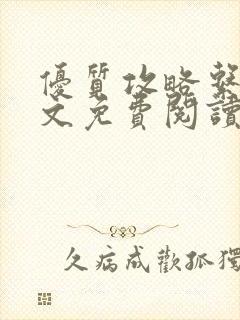 優質攻略繫
文免費閱讀
久病成歡孤獨